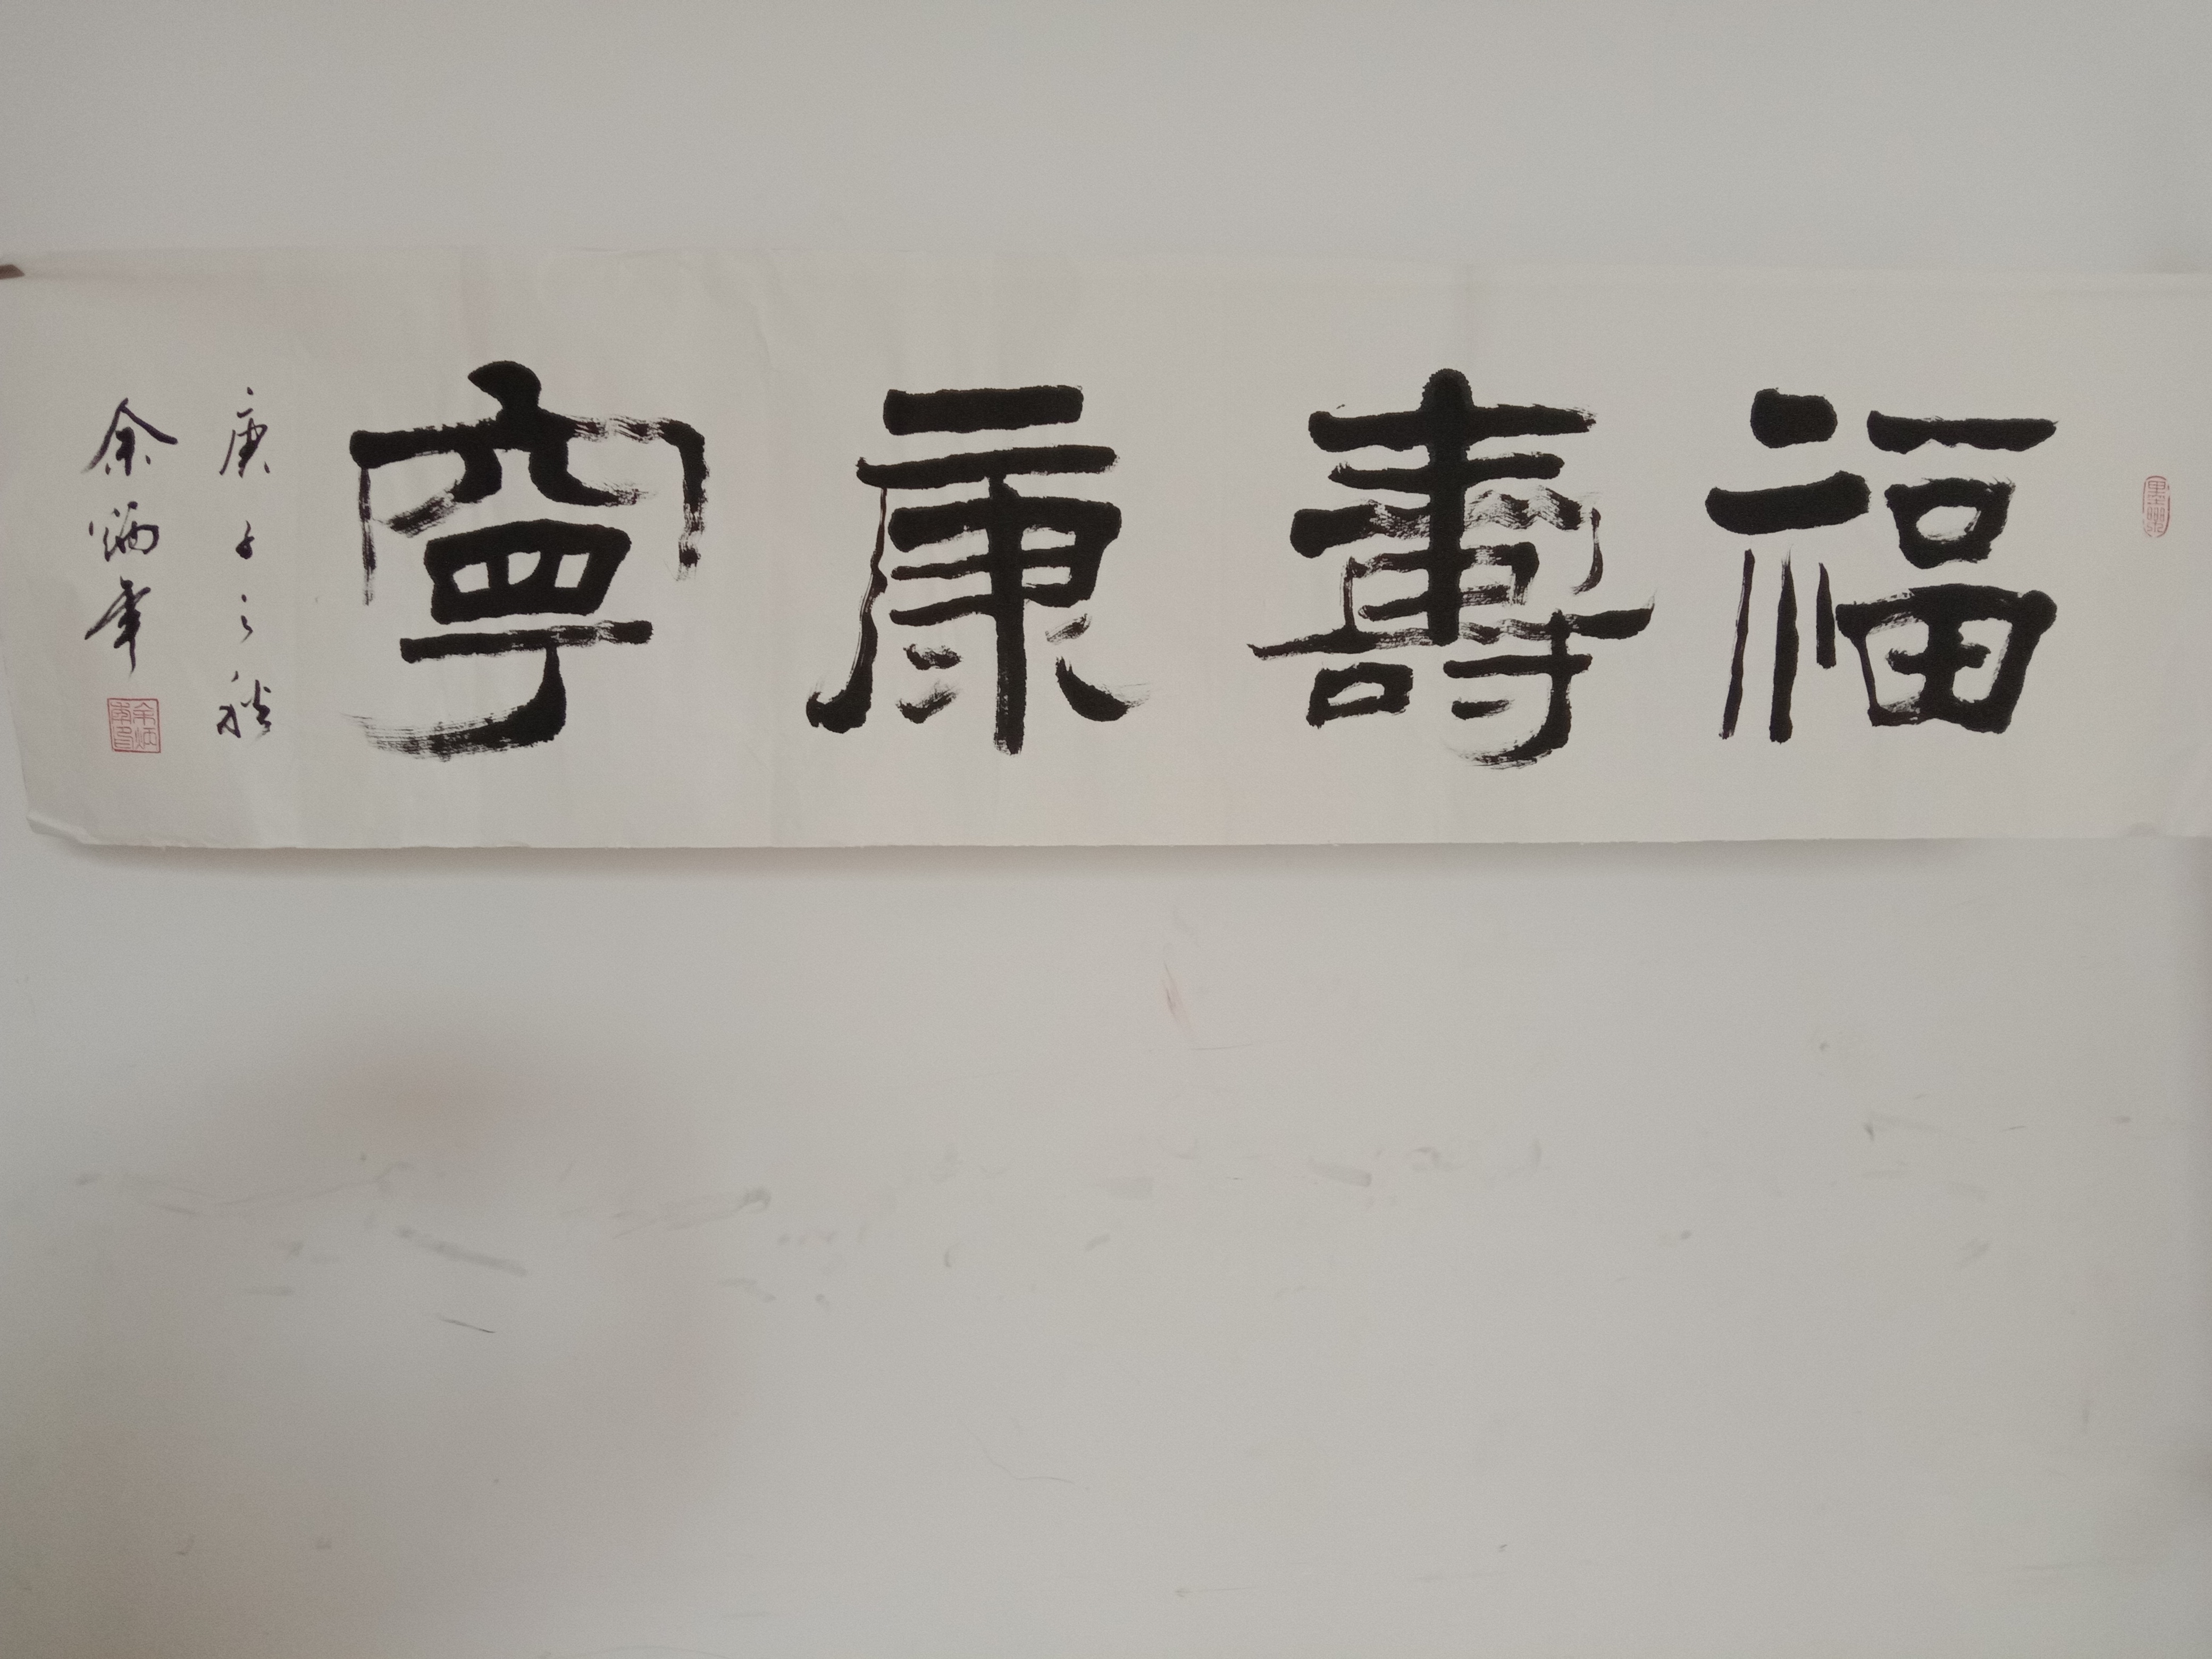 福壽康寧
庚子之秋
余炳年